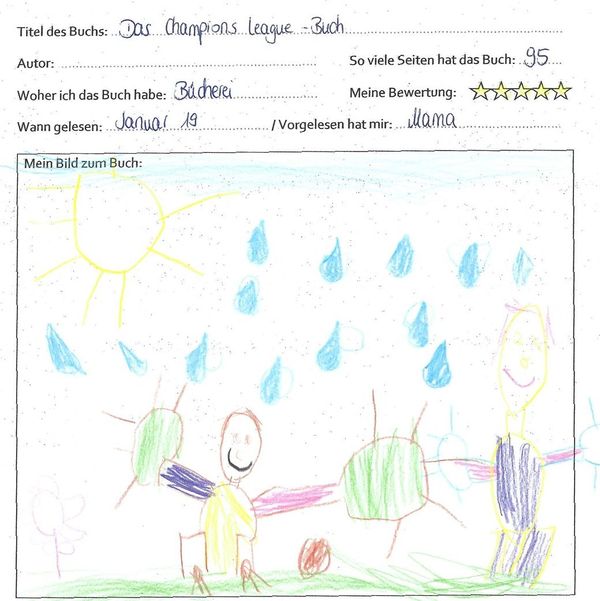 Titel des Buchs: Das Champions League-Buch
Autor: So viele Seiten hat das Buch: 95
Woher ich das Buch habe: Bücherei Meine Bewertung:
Wann gelesen: Januar 19 / Vorgelesen hat mir: Mama
Mein Bild zum Buch: